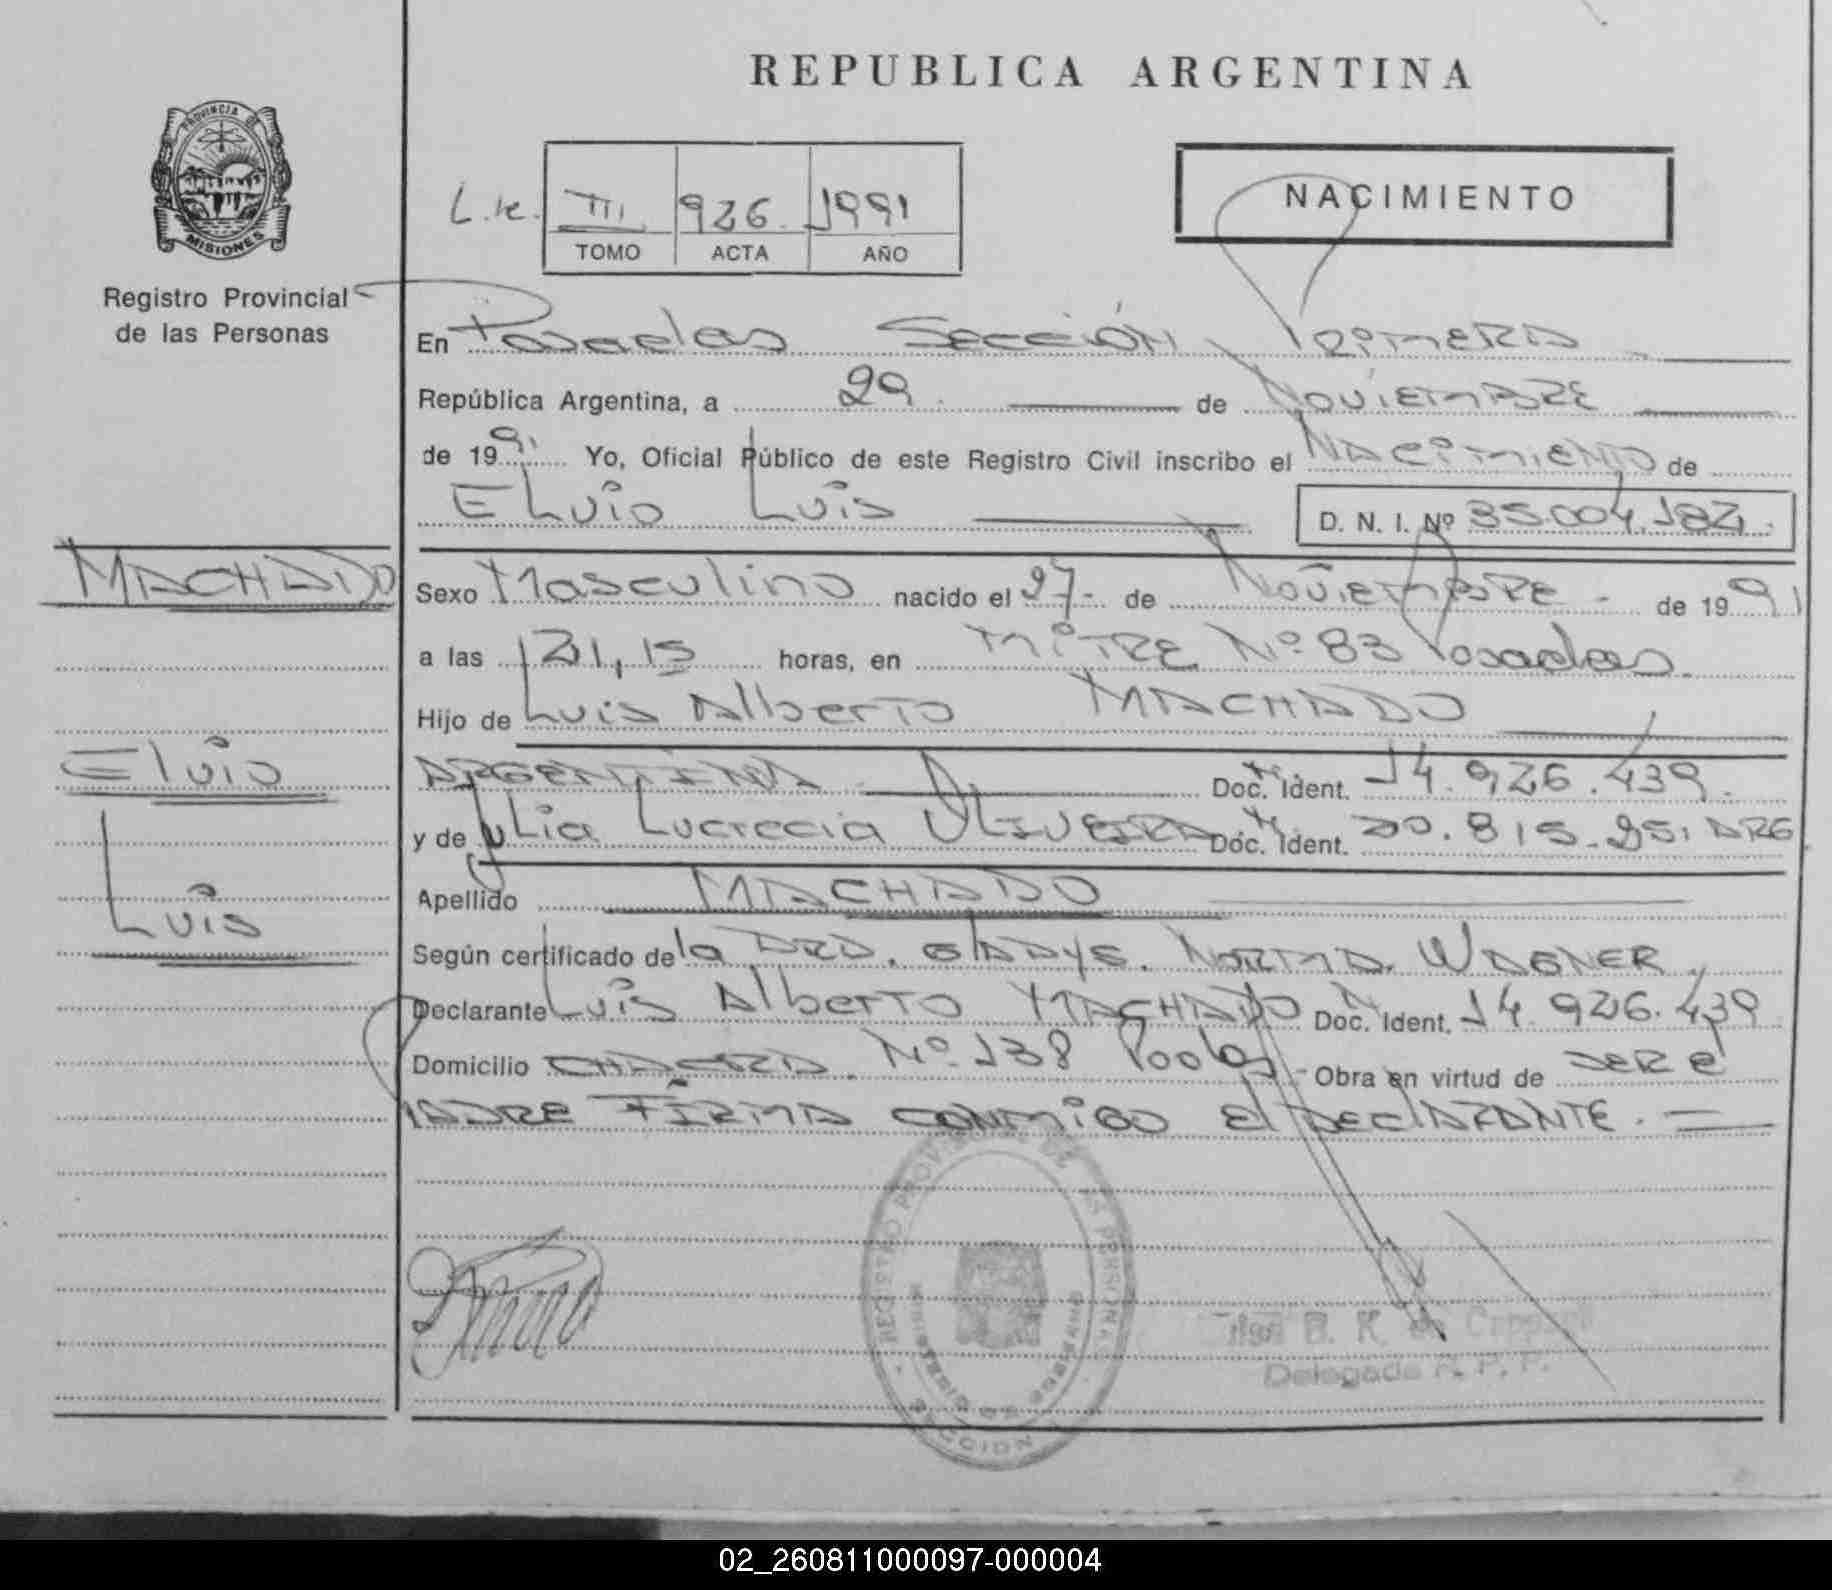 REPUBLICA ARGENTINA
PROVINCIA DE
MISIONES
Registro Provincial
de las Personas
NACIMIENTO
III 926 1991
TOMO ACTA AÑO
En Posadas Sección Primera
República Argentina, a 29 de Noviembre
de 1991 Yo, Oficial Público de este Registro Civil inscribo el Nacimiento de
Elvio Luis D. N. I. Nº 35.004.182
MACHADO
Elvio
Luis
Sexo Masculino nacido el 27 de Noviembre de 1991
a las 21,15 horas, en Mitre Nº 83 Posadas
Hijo de Luis Alberto MACHADO
ARGENTINA Doc. Ident. 14.926.439.
y de Julia Lucrecia OLIVEIRA Doc. Ident. 20.815.251 ARG
Apellido MACHADO
Según certificado de la DRA. GLADYS NORMA WAGNER
Declarante Luis Alberto MACHADO Doc. Ident. 14.926.439
Domicilio CHACRA Nº 138 Obra en virtud de SER el
PADRE FIRMA CONMIGO El DEClARANTE.
REGISTRO PROVINCIAL DE LAS PERSONAS
MINISTERIO DE GOBIERNO
SECCION
B. K. de
Delegada R. P. P.
02_260811000097-000004